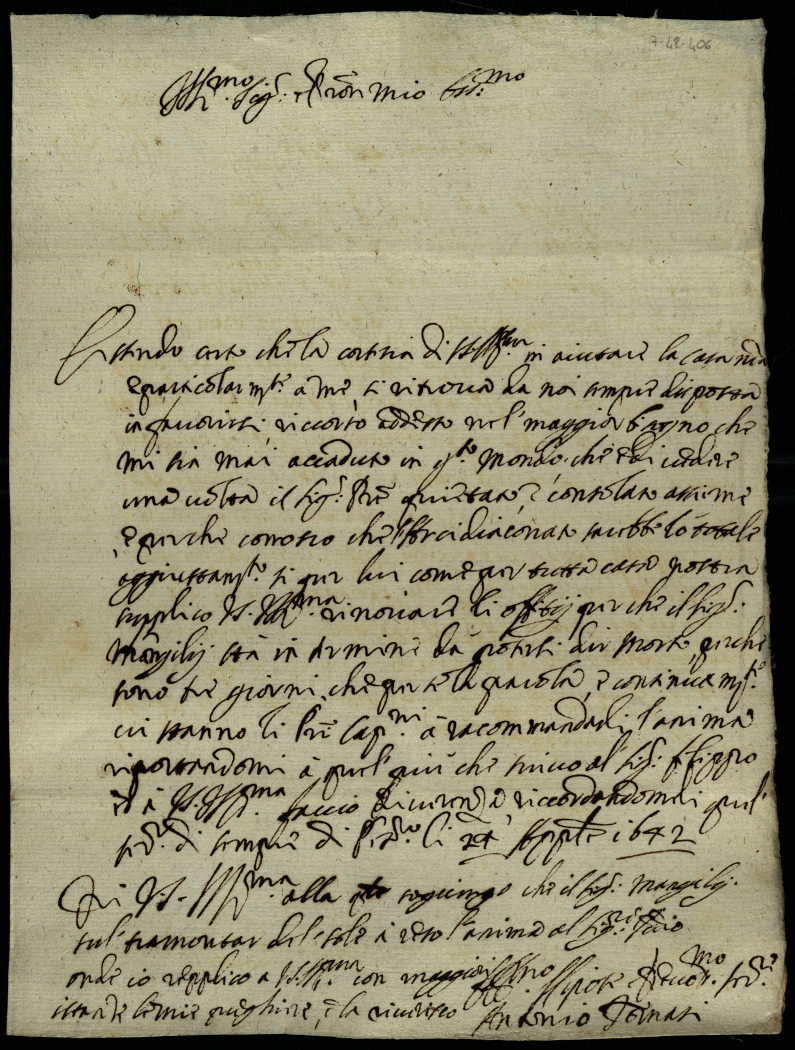 7-42-406
Ill.mo Sig.r et Pron mio Col.mo
Essendo certo che la cortesia di V.S. Ill.ma in aiutare la casa n̄ra
e particolarm.te à me, si ritrova da noi sempre disposta
in favorirsi riccorro addesso nel maggior bisogno che
mi sia mai accaduto in q.to mondo che è di vedere
una volta il Sig.r Pre quietato e consolato assieme
e perche conosco che l'Arcidiaconato sarebbe lo totale
aggiustam.to si per lui come per tutta casa nostra
supplico V.S. Ill.ma rinovare li offitij perche il Sig.r
Mangilij stà in termine da potersi dir morto, perche
sono tre giorni che perse la parola, e continuam.te
vi stanno li Pri Cap.ni à racomandadli l'anima
riportandomi à quel più che scrivo al Sig.r Filippo
et à V.S. Ill.ma faccio riverenza riccordandomeli quel
ser.re di sempre di li 24 Settbre 1642
Di V.S. Ill.ma alla soggiungo che il Sig.r Mangilij
sul tramontar del sole à reso l'anima al Sig.r Iddio
onde io repplico a V.S. Ill.ma con maggior
istanze le mie preghiere, e la riverisco Obl. Nipote et Devot.mo ser.re
Antonio Tomasi